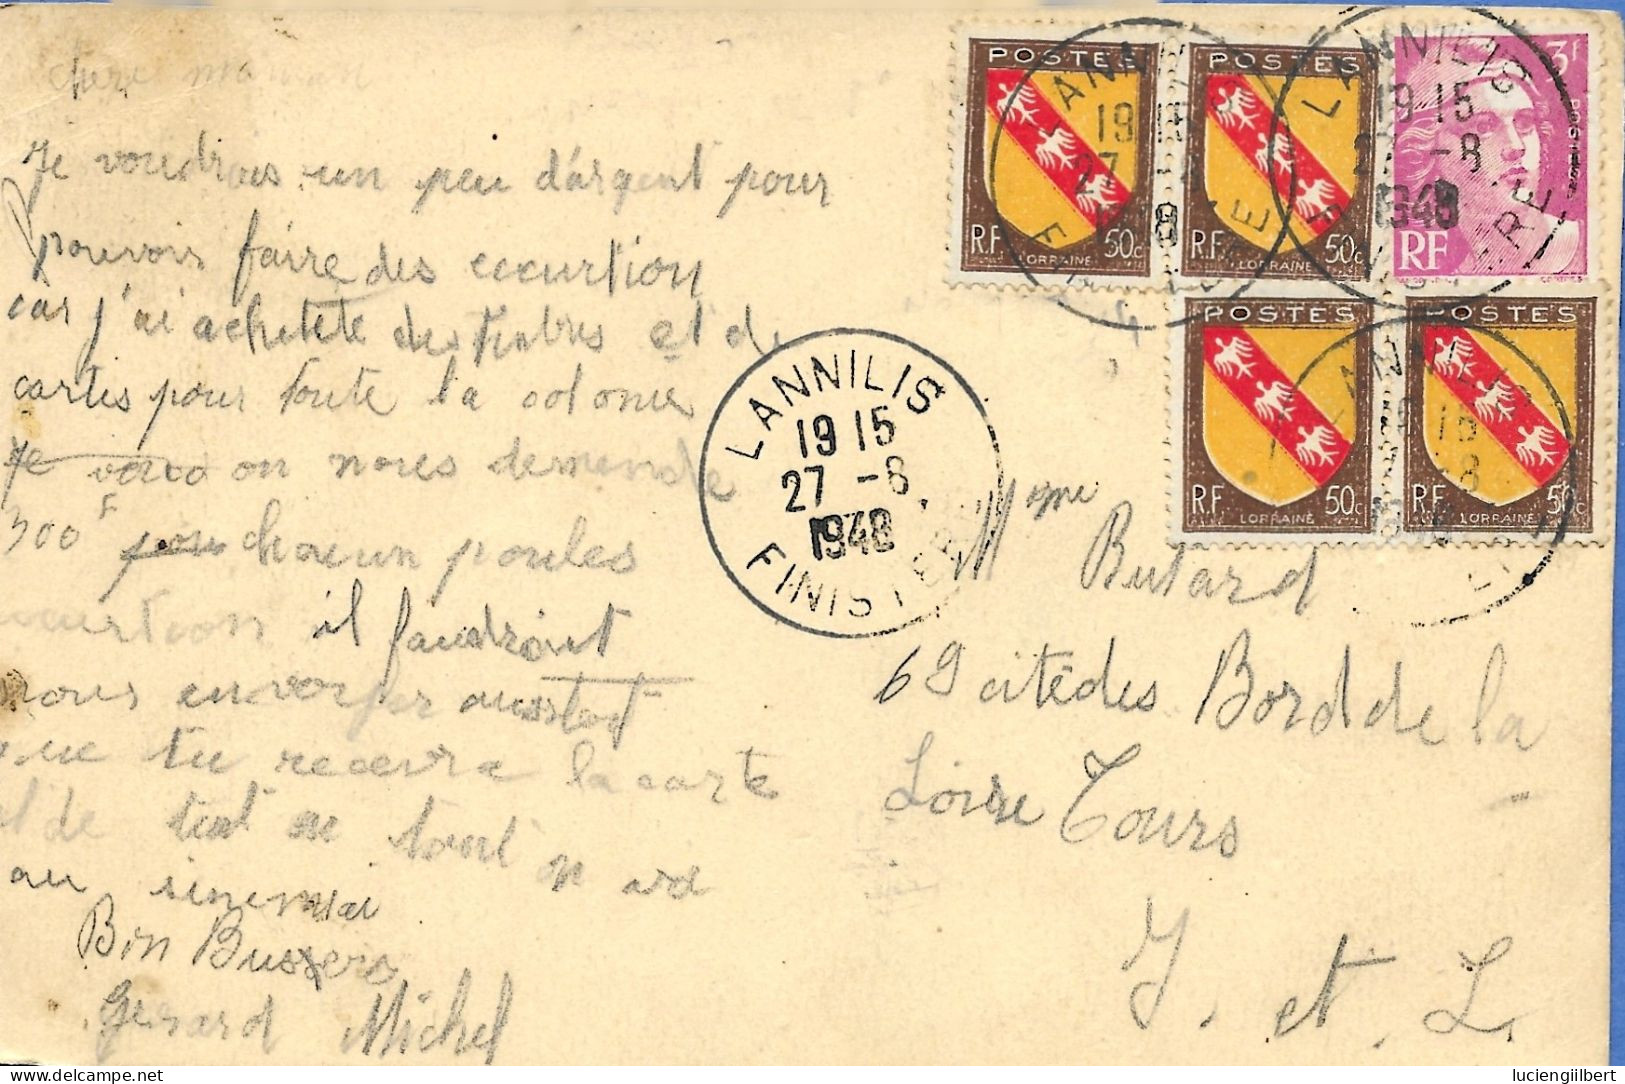 chere maman
Je voudrais un peu d'argent pour
pouvoir faire des excurtion
car j'ai achetété des timbres et de
cartes pour toute la colonie
Je on nous demende
300F pour chacun poules
il faudrait
nous envoyer ausitot
que tu recevra la carte
et de tent en tent on ard
au sinemai
Bon Busers
Gerard Michel
POSTES
RF 50c
LORRAINE
POSTES
RF 50c
LORRAINE
3f
POSTES
RF
POSTES
RF 50c
LORRAINE
POSTES
RF 50c
LORRAINE
LANNILIS
19 15
27 -8
1948
FINISTERE
LANNILIS
19 15
27 -8
1948
FINISTERE
LANNILIS
19 15
27 -8
1948
FINISTERE
Mme Butard
69 cité des Bord de la
Loire Tours
I. et L.
delcampe.net
luciengilbert